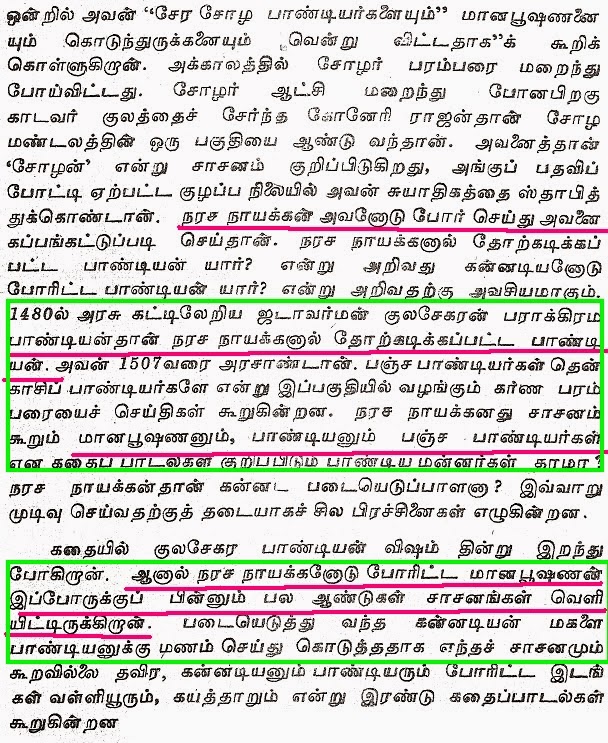 ஒன்றில் அவன் “சேர சோழ பாண்டியர்களையும்” மானபூஷணனை
யும் கொடுந்துருக்கனையும் வென்று விட்டதாக”க் கூறிக்
கொள்ளுகிறான். அக்காலத்தில் சோழர் பரம்பரை மறைந்து
போய்விட்டது. சோழர் ஆட்சி மறைந்து போனபிறகு
காடவர் குலத்தைச் சேர்ந்த கோனேரி ராஜன்தான் சோழ
மண்டலத்தின் ஒரு பகுதியை ஆண்டு வந்தான். அவனைத்தான்
‘சோழன்’ என்று சாசனம் குறிப்பிடுகிறது, அங்குப் பதவிப்
போட்டி ஏற்பட்ட குழப்ப நிலையில் அவன் சுயாதிகத்தை ஸ்தாபித்
துக்கொண்டான். நரச நாயக்கன் அவனோடு போர் செய்து அவனை
கப்பங்கட்டுப்படி செய்தான். நரச நாயக்கனால் தோற்கடிக்கப்
பட்ட பாண்டியன் யார்? என்று அறிவது கன்னடியனோடு
போரிட்ட பாண்டியன் யார்? என்று அறிவதற்கு அவசியமாகும்.
1480ல் அரசு கட்டிலேறிய ஜடாவர்மன் குலசேகரன் பராக்கிரம
பாண்டியன்தான் நரச நாயக்கனால் தோற்கடிக்கப்பட்ட பாண்டி
யன். அவன் 1507வரை அரசாண்டான். பஞ்ச பாண்டியர்கள் தென்
காசிப் பாண்டியர்களே என்று இப்பகுதியில் வழங்கும் கர்ண பரம்
பரையைச் செய்திகள் கூறுகின்றன. நரச நாயக்கனது சாசனம்
கூறும் மானபூஷணனும், பாண்டியனும் பஞ்ச பாண்டியர்கள்
என கதைப் பாடல்கள் குறிப்பிடும் பாண்டிய மன்னர்கள் தாமா?
நரச நாயக்கன்தான் கன்னட படையெடுப்பாளனா? இவ்வாறு
முடிவு செய்வதற்குத் தடையாகச் சில பிரச்சினைகள் எழுகின்றன.
கதையில் குலசேகர பாண்டியன் விஷம் தின்று இறந்து
போகிறான். ஆனால் நரச நாயக்கனோடு போரிட்ட மானபூஷணன்
இப்போருக்குப் பின்னும் பல ஆண்டுகள் சாசனங்கள் வெளி
யிட்டிருக்கிறான். படையெடுத்து வந்த கன்னடியன் மகளை
பாண்டியனுக்கு மணம் செய்து கொடுத்ததாக எந்தச் சாசனமும்
கூறவில்லை தவிர, கன்னடியனும் பாண்டியரும் போரிட்ட இடங்
கள் வள்ளியூரும், கயத்தாறும் என்று இரண்டு கதைப்பாடல்கள்
கூறுகின்றன